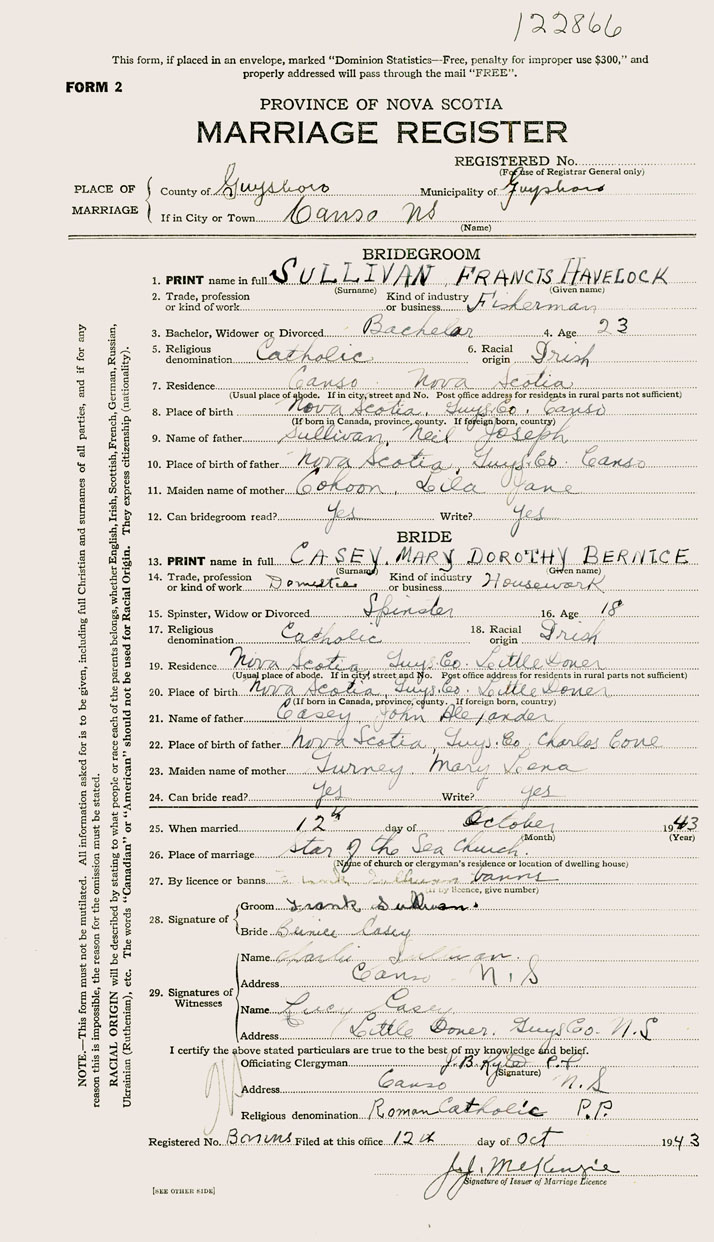 122866
This form, if placed in an envelope, marked "Dominion Statistics—Free, penalty for improper use $300," and
properly addressed will pass through the mail "FREE".
FORM 2
PROVINCE OF NOVA SCOTIA
MARRIAGE REGISTER
REGISTERED No.
(For use of Registrar General only)
PLACE OF MARRIAGE
County of Guysboro Municipality of Guysboro
If in City or Town Canso NS
(Name)
BRIDEGROOM
1. PRINT name in full SULLIVAN FRANCIS HAVELOCK
(Surname) (Given name)
2. Trade, profession or kind of work Kind of industry or business Fisherman
3. Bachelor, Widower or Divorced Bachelor 4. Age 23
5. Religious denomination Catholic 6. Racial origin Irish
7. Residence Canso Nova Scotia
(Usual place of abode. If in city, street and No. Post office address for residents in rural parts not sufficient)
8. Place of birth Nova Scotia, Guys. Co. Canso
(If born in Canada, province, county. If foreign born, country)
9. Name of father Sullivan, Neil Joseph
10. Place of birth of father Nova Scotia, Guys. Co. Canso
11. Maiden name of mother Cohoon, Lila Jane
12. Can bridegroom read? Yes Write? Yes
BRIDE
13. PRINT name in full CASEY, MARY DOROTHY BERNICE
(Surname) (Given name)
14. Trade, profession or kind of work Domestic Kind of industry or business Housework
15. Spinster, Widow or Divorced Spinster 16. Age 18
17. Religious denomination Catholic 18. Racial origin Irish
19. Residence Nova Scotia, Guys. Co. Little Dover
(Usual place of abode. If in city, street and No. Post office address for residents in rural parts not sufficient)
20. Place of birth Nova Scotia, Guys. Co. Little Dover
(If born in Canada, province, county. If foreign born, country)
21. Name of father Casey, John Alexander
22. Place of birth of father Nova Scotia, Guys. Co. Charlos Cove
23. Maiden name of mother Gurney, Mary Leena
24. Can bride read? Yes Write? yes
25. When married 12th day of October 1943
(Month) (Year)
26. Place of marriage Star of the Sea Church
(Name of church or clergyman's residence or location of dwelling house)
27. By licence or banns banns
(If by licence, give number)
28. Signature of
Groom Frank Sullivan
Bride Bernice Casey
29. Signatures of Witnesses
Name Charlie Sullivan
Address Canso N.S
Name Lucy Casey
Address Little Dover, Guys Co. N.S
I certify the above stated particulars are true to the best of my knowledge and belief.
Officiating Clergyman J. B. Kyte P.P.
(Signature)
Address Canso N.S
Religious denomination Roman Catholic P.P.
Registered No. Banns Filed at this office 12th day of Oct 1943
J.J. McKenzie
Signature of Issuer of Marriage Licence
[SEE OTHER SIDE]
NOTE.—This form must not be mutilated. All information asked for is to be given, including full Christian and surnames of all parties, and if for any
reason this is impossible, the reason for the omission must be stated.
RACIAL ORIGIN will be described by stating to what people or race each of the parents belongs, whether English, Irish, Scottish, French, German, Russian,
Ukrainian (Ruthenian), etc. The words "Canadian" or "American" should not be used for Racial Origin. They express citizenship (nationality).